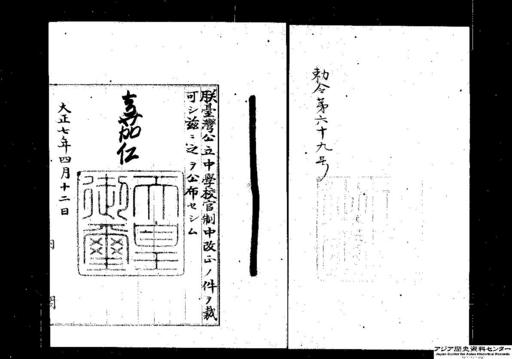 勅令第六十九号
朕臺灣公立中學校官制中改正ノ件ヲ裁
可シ茲ニ之ヲ公布セシム
嘉仁
天皇御璽
大正七年四月十二日
アジア歴史資料センター
Japan Center for Asian Historical Records